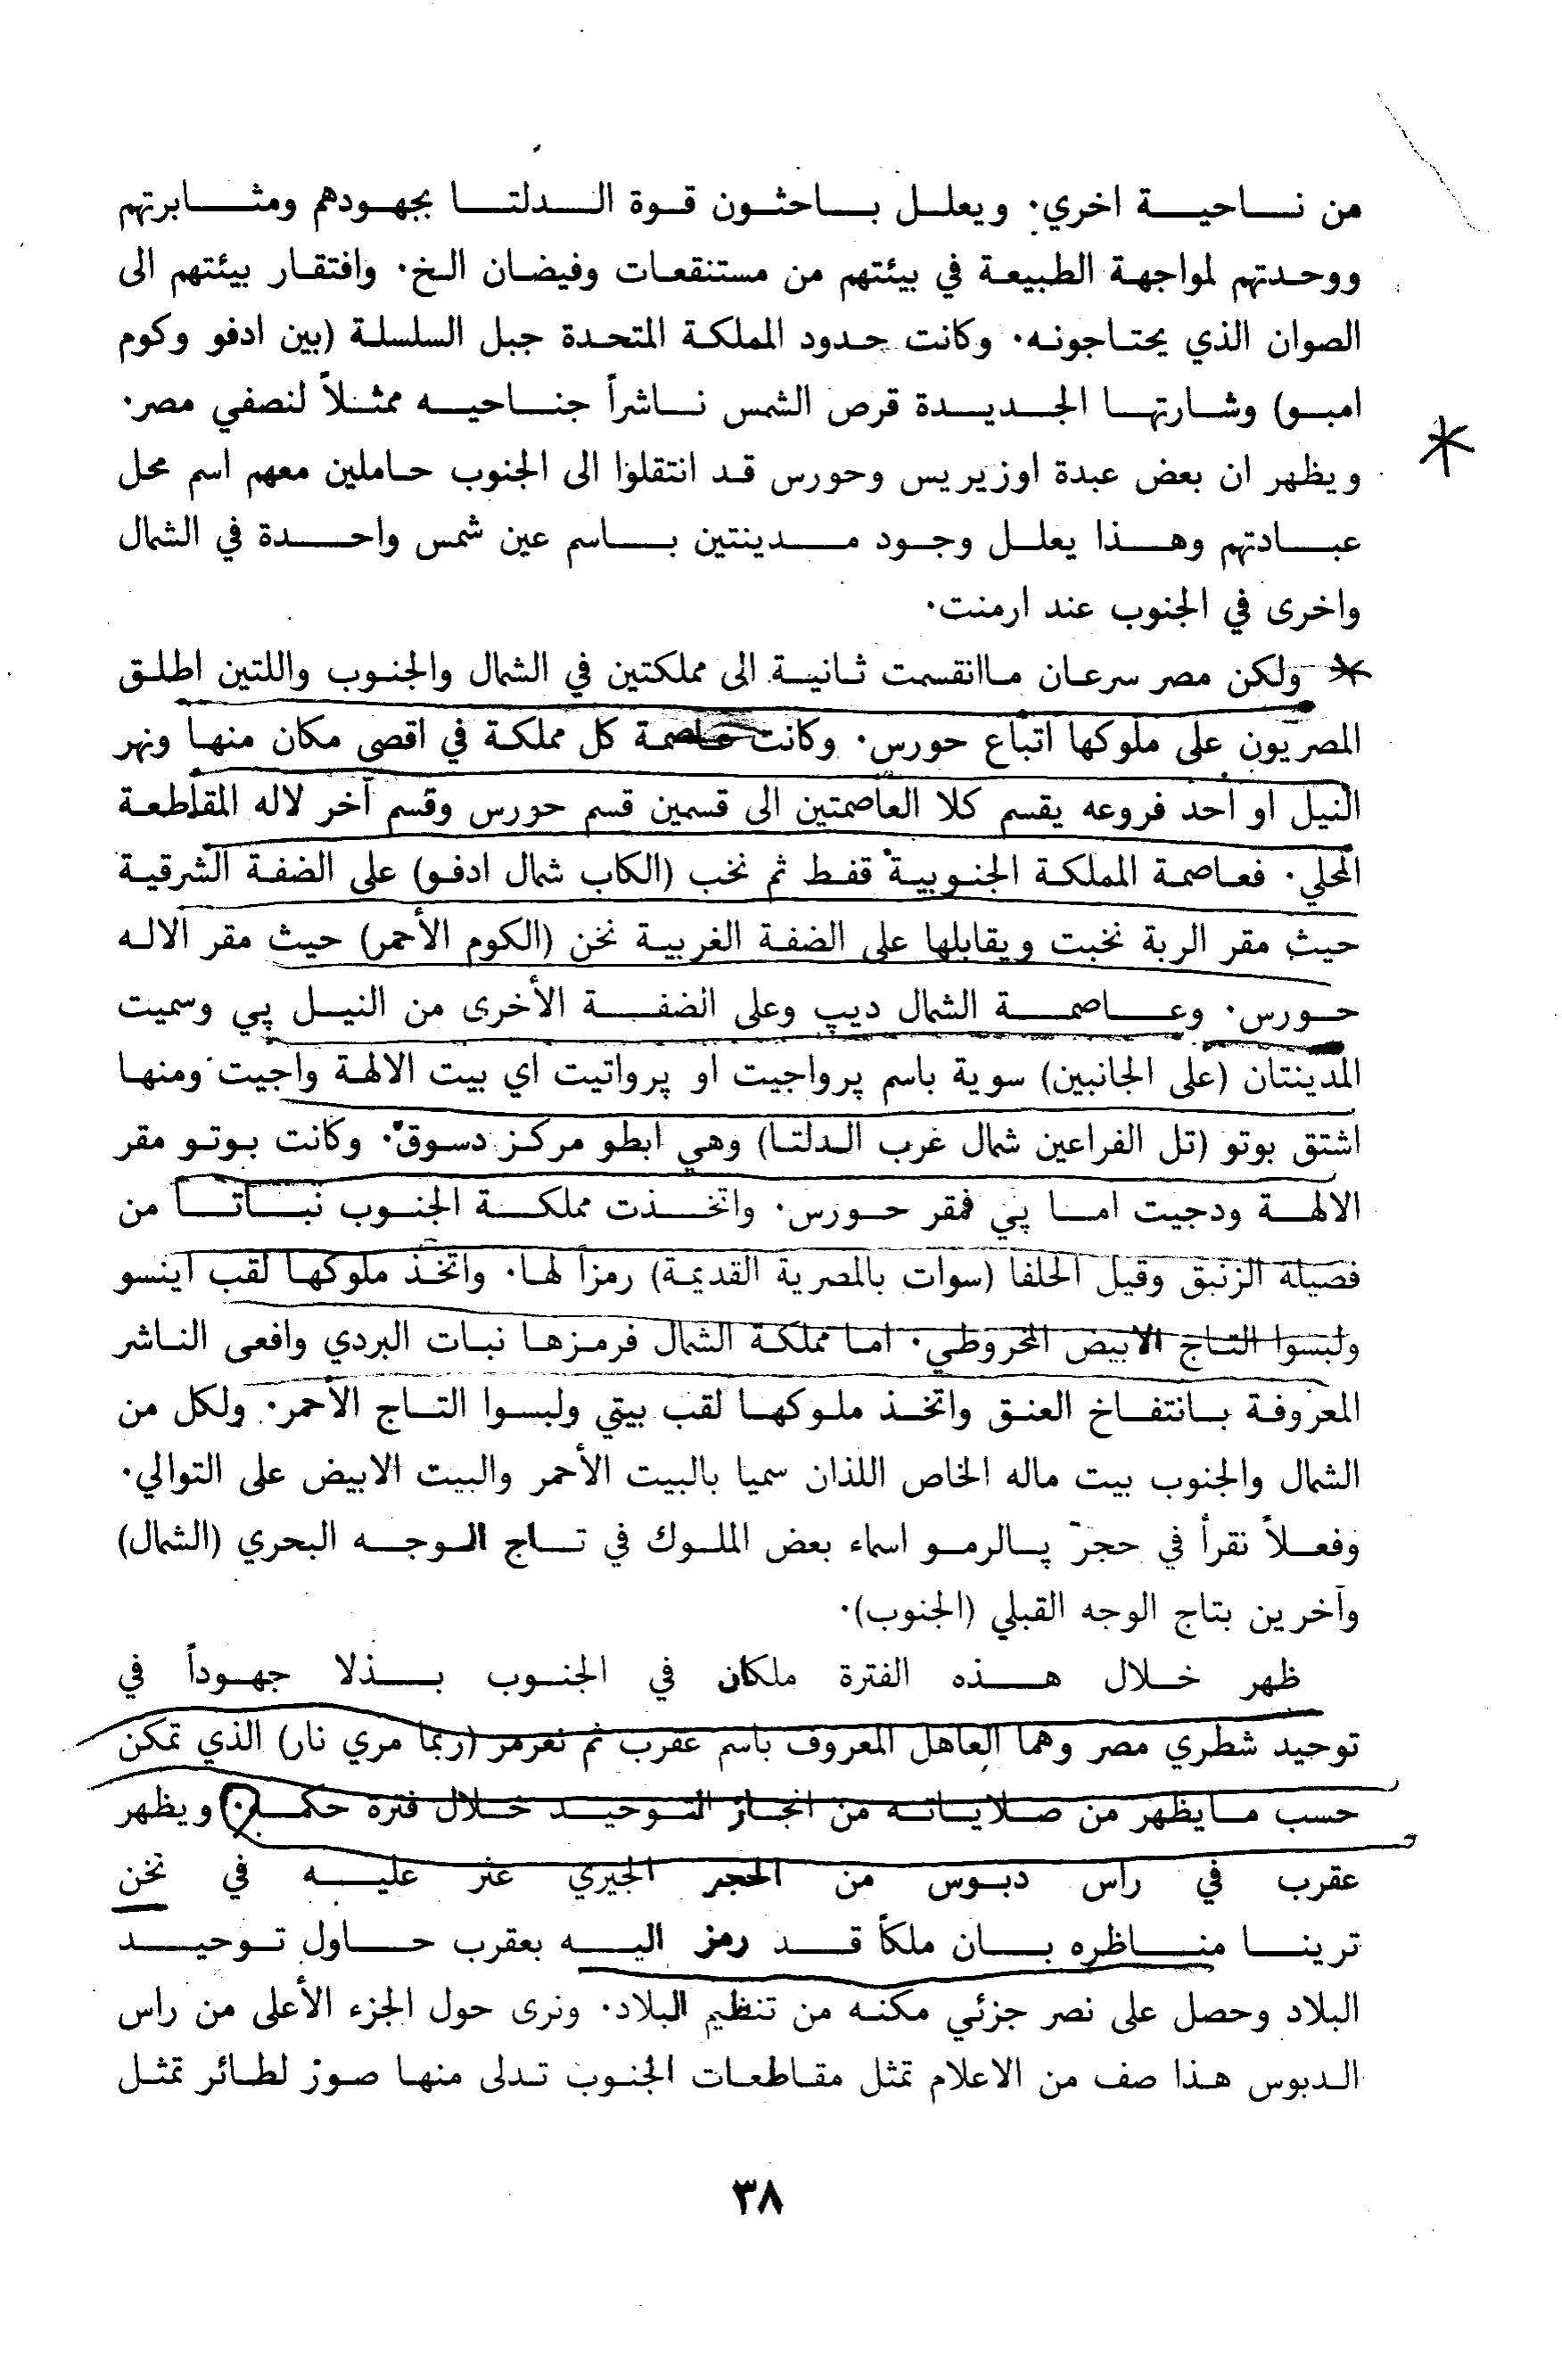 من ناحية اخري. ويعلل باحثون قوة الدلتا بجهودهم ومثابرتهم
ووحدتهم لمواجهة الطبيعة في بيئتهم من مستنقعات وفيضان الخ. وافتقار بيئتهم الى
الصوان الذي يحتاجونه. وكانت حدود المملكة المتحدة جبل السلسلة (بين ادفو وكوم
امبو) وشارتها الجديدة قرص الشمس ناشراً جناحيه ممثلاً لنصفي مصر.
ويظهر ان بعض عبدة اوزيريس وحورس قد انتقلوا الى الجنوب حاملين معهم اسم محل
عبادتهم وهذا يعلل وجود مدينتين باسم عين شمس واحدة في الشمال
واخرى في الجنوب عند ارمنت.
ولكن مصر سرعان ماانقسمت ثانية الى مملكتين في الشمال والجنوب واللتين اطلق
المصريون على ملوكها اتباع حورس. وكانت عاصمة كل مملكة في اقصى مكان منها ونهر
النيل او أحد فروعه يقسم كلا العاصمتين الى قسمين قسم حورس وقسم آخر لاله المقاطعة
المحلي. فعاصمة المملكة الجنوبية قفط ثم نخب (الكاب شمال ادفو) على الضفة الشرقية
حيث مقر الربة نخبت ويقابلها على الضفة الغربية نخن (الكوم الأحمر) حيث مقر الاله
حورس. وعاصمة الشمال ديپ وعلى الضفة الأخرى من النيل پي وسميت
المدينتان (على الجانبين) سوية باسم پرواجيت او پرواتيت اي بيت الالهة واجيت ومنها
اشتق بوتو (تل الفراعين شمال غرب الدلتا) وهي ابطو مركز دسوق. وكانت بوتو مقر
الالهة ودجيت اما پي فمقر حورس. واتخذت مملكة الجنوب نباتا من
فصيلة الزنبق وقيل الحلفا (سوات بالمصرية القديمة) رمزاً لها. واتخذ ملوكها لقب اينسو
ولبسوا التاج الابيض المخروطي. اما مملكة الشمال فرمزها نبات البردي وافعى الناشر
المعروفة بانتفاخ العنق واتخذ ملوكها لقب بيتي ولبسوا التاج الأحمر. ولكل من
الشمال والجنوب بيت ماله الخاص اللذان سميا بالبيت الأحمر والبيت الابيض على التوالي.
وفعلاً نقرأ في حجر پالرمو اسماء بعض الملوك في تاج الوجه البحري (الشمال)
وآخرين بتاج الوجه القبلي (الجنوب).
ظهر خلال هذه الفترة ملكان في الجنوب بذلا جهوداً في
توحيد شطري مصر وهما العاهل المعروف باسم عقرب ثم نعرمر (ربما مري نار) الذي تمكن
حسب مايظهر من صلاياته من انجاز التوحيد خلال فترة حكمه. ويظهر
عقرب في راس دبوس من الحجر الجيري عثر عليه في نخن
ترينا مناظره بان ملكاً قد رمز اليه بعقرب حاول توحيد
البلاد وحصل على نصر جزئي مكنه من تنظيم البلاد. ونرى حول الجزء الأعلى من راس
الدبوس هذا صف من الاعلام تمثل مقاطعات الجنوب تدلى منها صور لطائر تمثل
٣٨